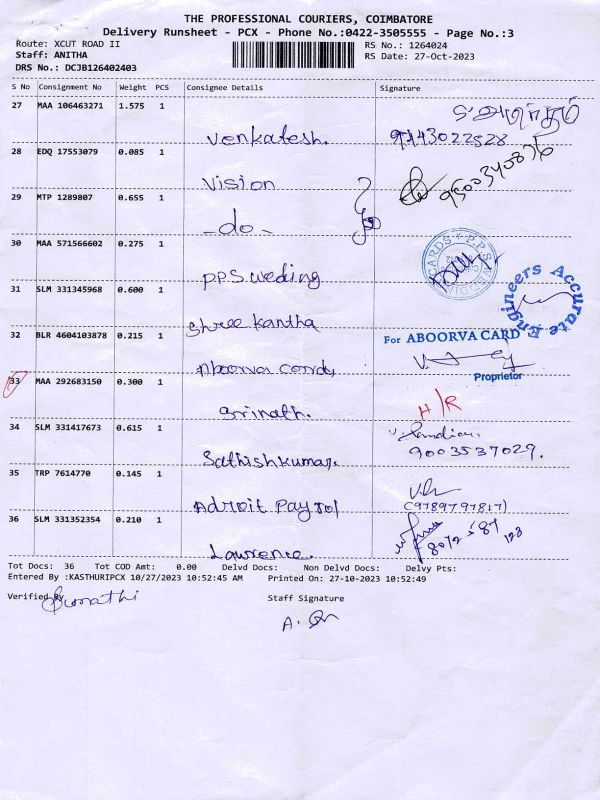 THE PROFESSIONAL COURIERS, COIMBATORE
Delivery Runsheet - PCX - Phone No.:0422-3505555 - Page No.:3
Route: XCUT ROAD II RS No.: 1264024
Staff: ANITHA RS Date: 27-Oct-2023
DRS No.: DCJB126402403
S No Consignment No Weight PCS Consignee Details Signature
27 MAA 106463271 1.575 1
Venkatesh. 9443022528
28 EDQ 17553079 0.085 1
Vision
29 MTP 1289807 0.655 1
-do-
30 MAA 571566602 0.275 1
P.P.S weding
31 SLM 331345968 0.600 1
Engineers Accurate
Shree Kantha
32 BLR 4604103878 0.215 1
For ABOORVA CARD
Aboorva Cards,
Proprietor
33 MAA 292683150 0.300 1
Srinath. H/R
34 SLM 331417673 0.615 1
Sathishkumar. 9003537029.
35 TRP 7614770 0.145 1
Adroit Payrol (9789797817)
36 SLM 331352354 0.210 1
Lawrence.
Tot Docs: 36 Tot COD Amt: 0.00 Delvd Docs: Non Delvd Docs: Delvy Pts:
Entered By :KASTHURIPCX 10/27/2023 10:52:45 AM Printed On: 27-10-2023 10:52:49
Verified By Staff Signature
Sumathi